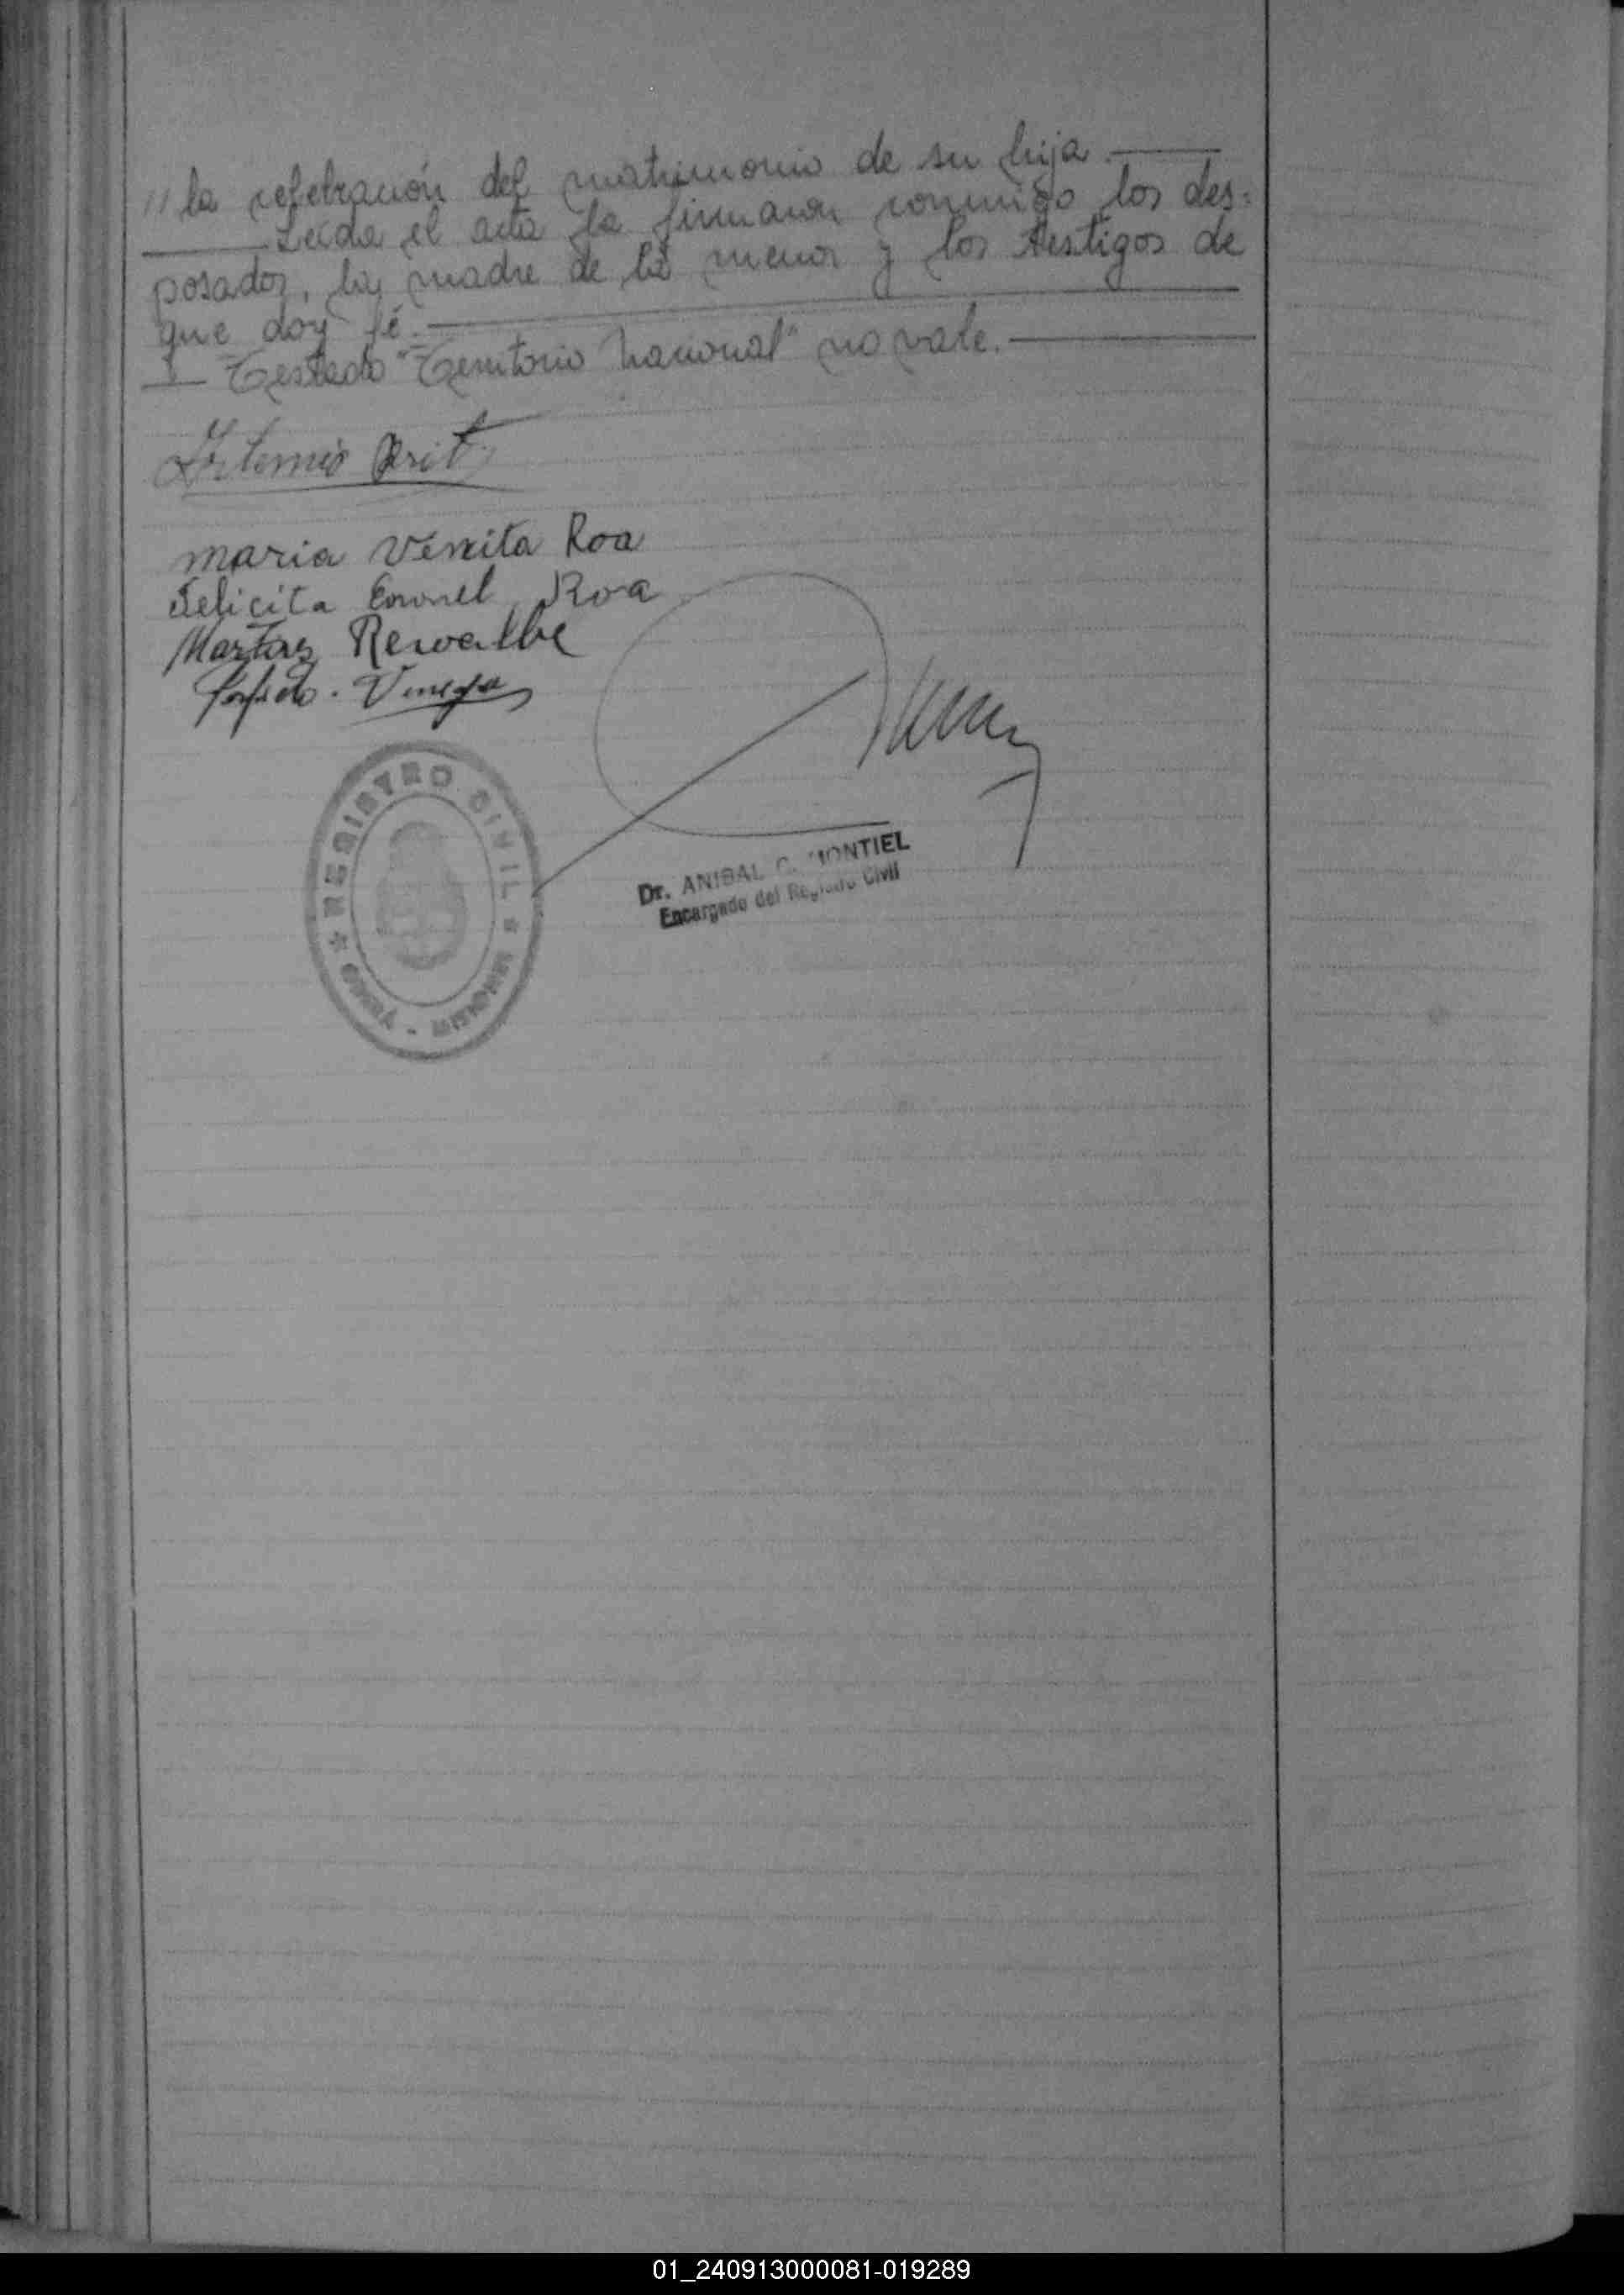 // la celebración del matrimonio de su hija.
Leída el acta la firmaron conmigo los des=
posados, la madre de la menor y los testigos de
que doy fé.
Testado "Territorio Nacional" no vale.
Artemio Brit
maria Venita Roa
Felicita Coronel Roa
Martires
Venega
REGISTRO CIVIL
MISIONES
Dr. ANIBAL C. MONTIEL
Encargado del Registro Civil
01_240913000081-019289